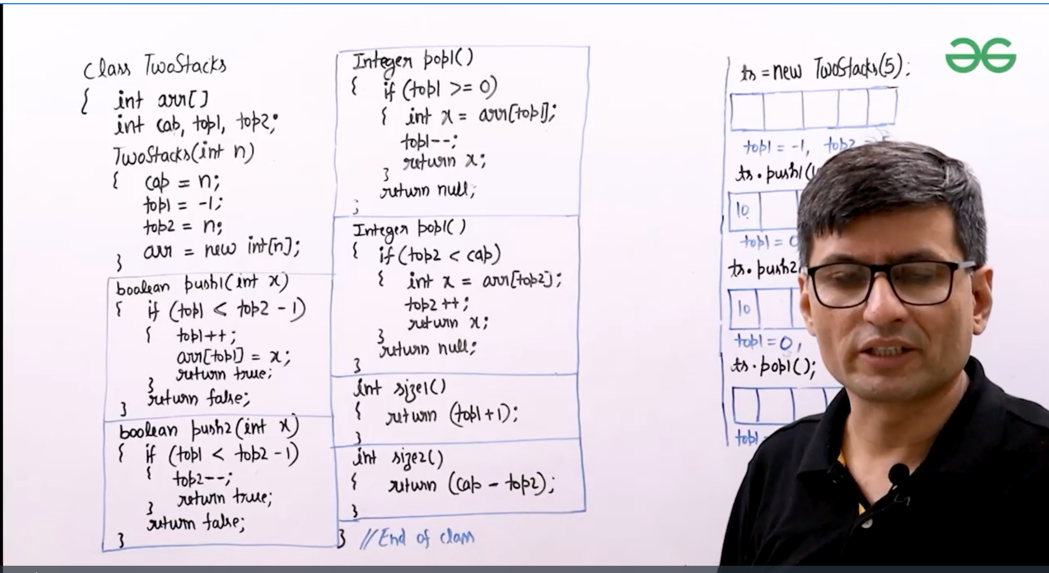 class TwoStacks
{ int arr[]
int cap, top1, top2;
TwoStacks(int n)
{ cap = n;
top1 = -1;
top2 = n;
arr = new int[n];
}
boolean push1(int x)
{ if (top1 < top2 - 1)
{ top1++;
arr[top1] = x;
return true;
}
return false;
}
boolean push2(int x)
{ if (top1 < top2 - 1)
{ top2--;
return true;
}
return false;
}
Integer pop1()
{ if (top1 >= 0)
{ int x = arr[top1];
top1--;
return x;
}
return null;
}
Integer pop1()
{ if (top2 < cap)
{ int x = arr[top2];
top2++;
return x;
}
return null;
}
int size1()
{ return (top1+1);
}
int size2()
{ return (cap - top2);
}
} //End of class
ts = new TwoStacks(5);
top1 = -1, top2 =
ts.push1(
10
top1 = 0
ts.push2
10
top1 = 0,
ts.pop1();
top1